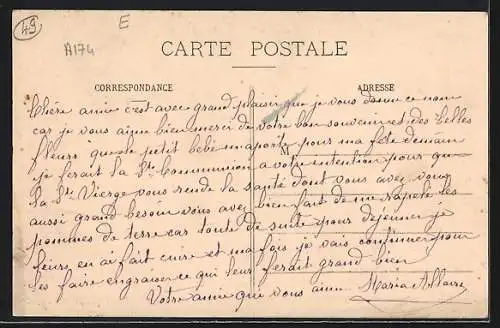 49
E
A174
CARTE POSTALE
CORRESPONDANCE
ADRESSE
M
Chère amie c'est avec grand plaisir que je vous donne ce nom
car je vous aime bien merci de votre bon souvenir et des belles
fleurs que le petit bébé m'aporte pour ma fête demain
je ferait la Ste Communion a votre intention pour que
la Ste Vierge vous rende la santé dont vous avez vous
aussi grand besoin vous avez bien fait de me rapeté les
pommes de terre car toute de suite pour dejeuner je
leurs en ai fait cuire et ma fois je vais continuer pour
les faire engraiser ce qui leur ferait grand bien
Votre amie qui vous aime Maria Allaire